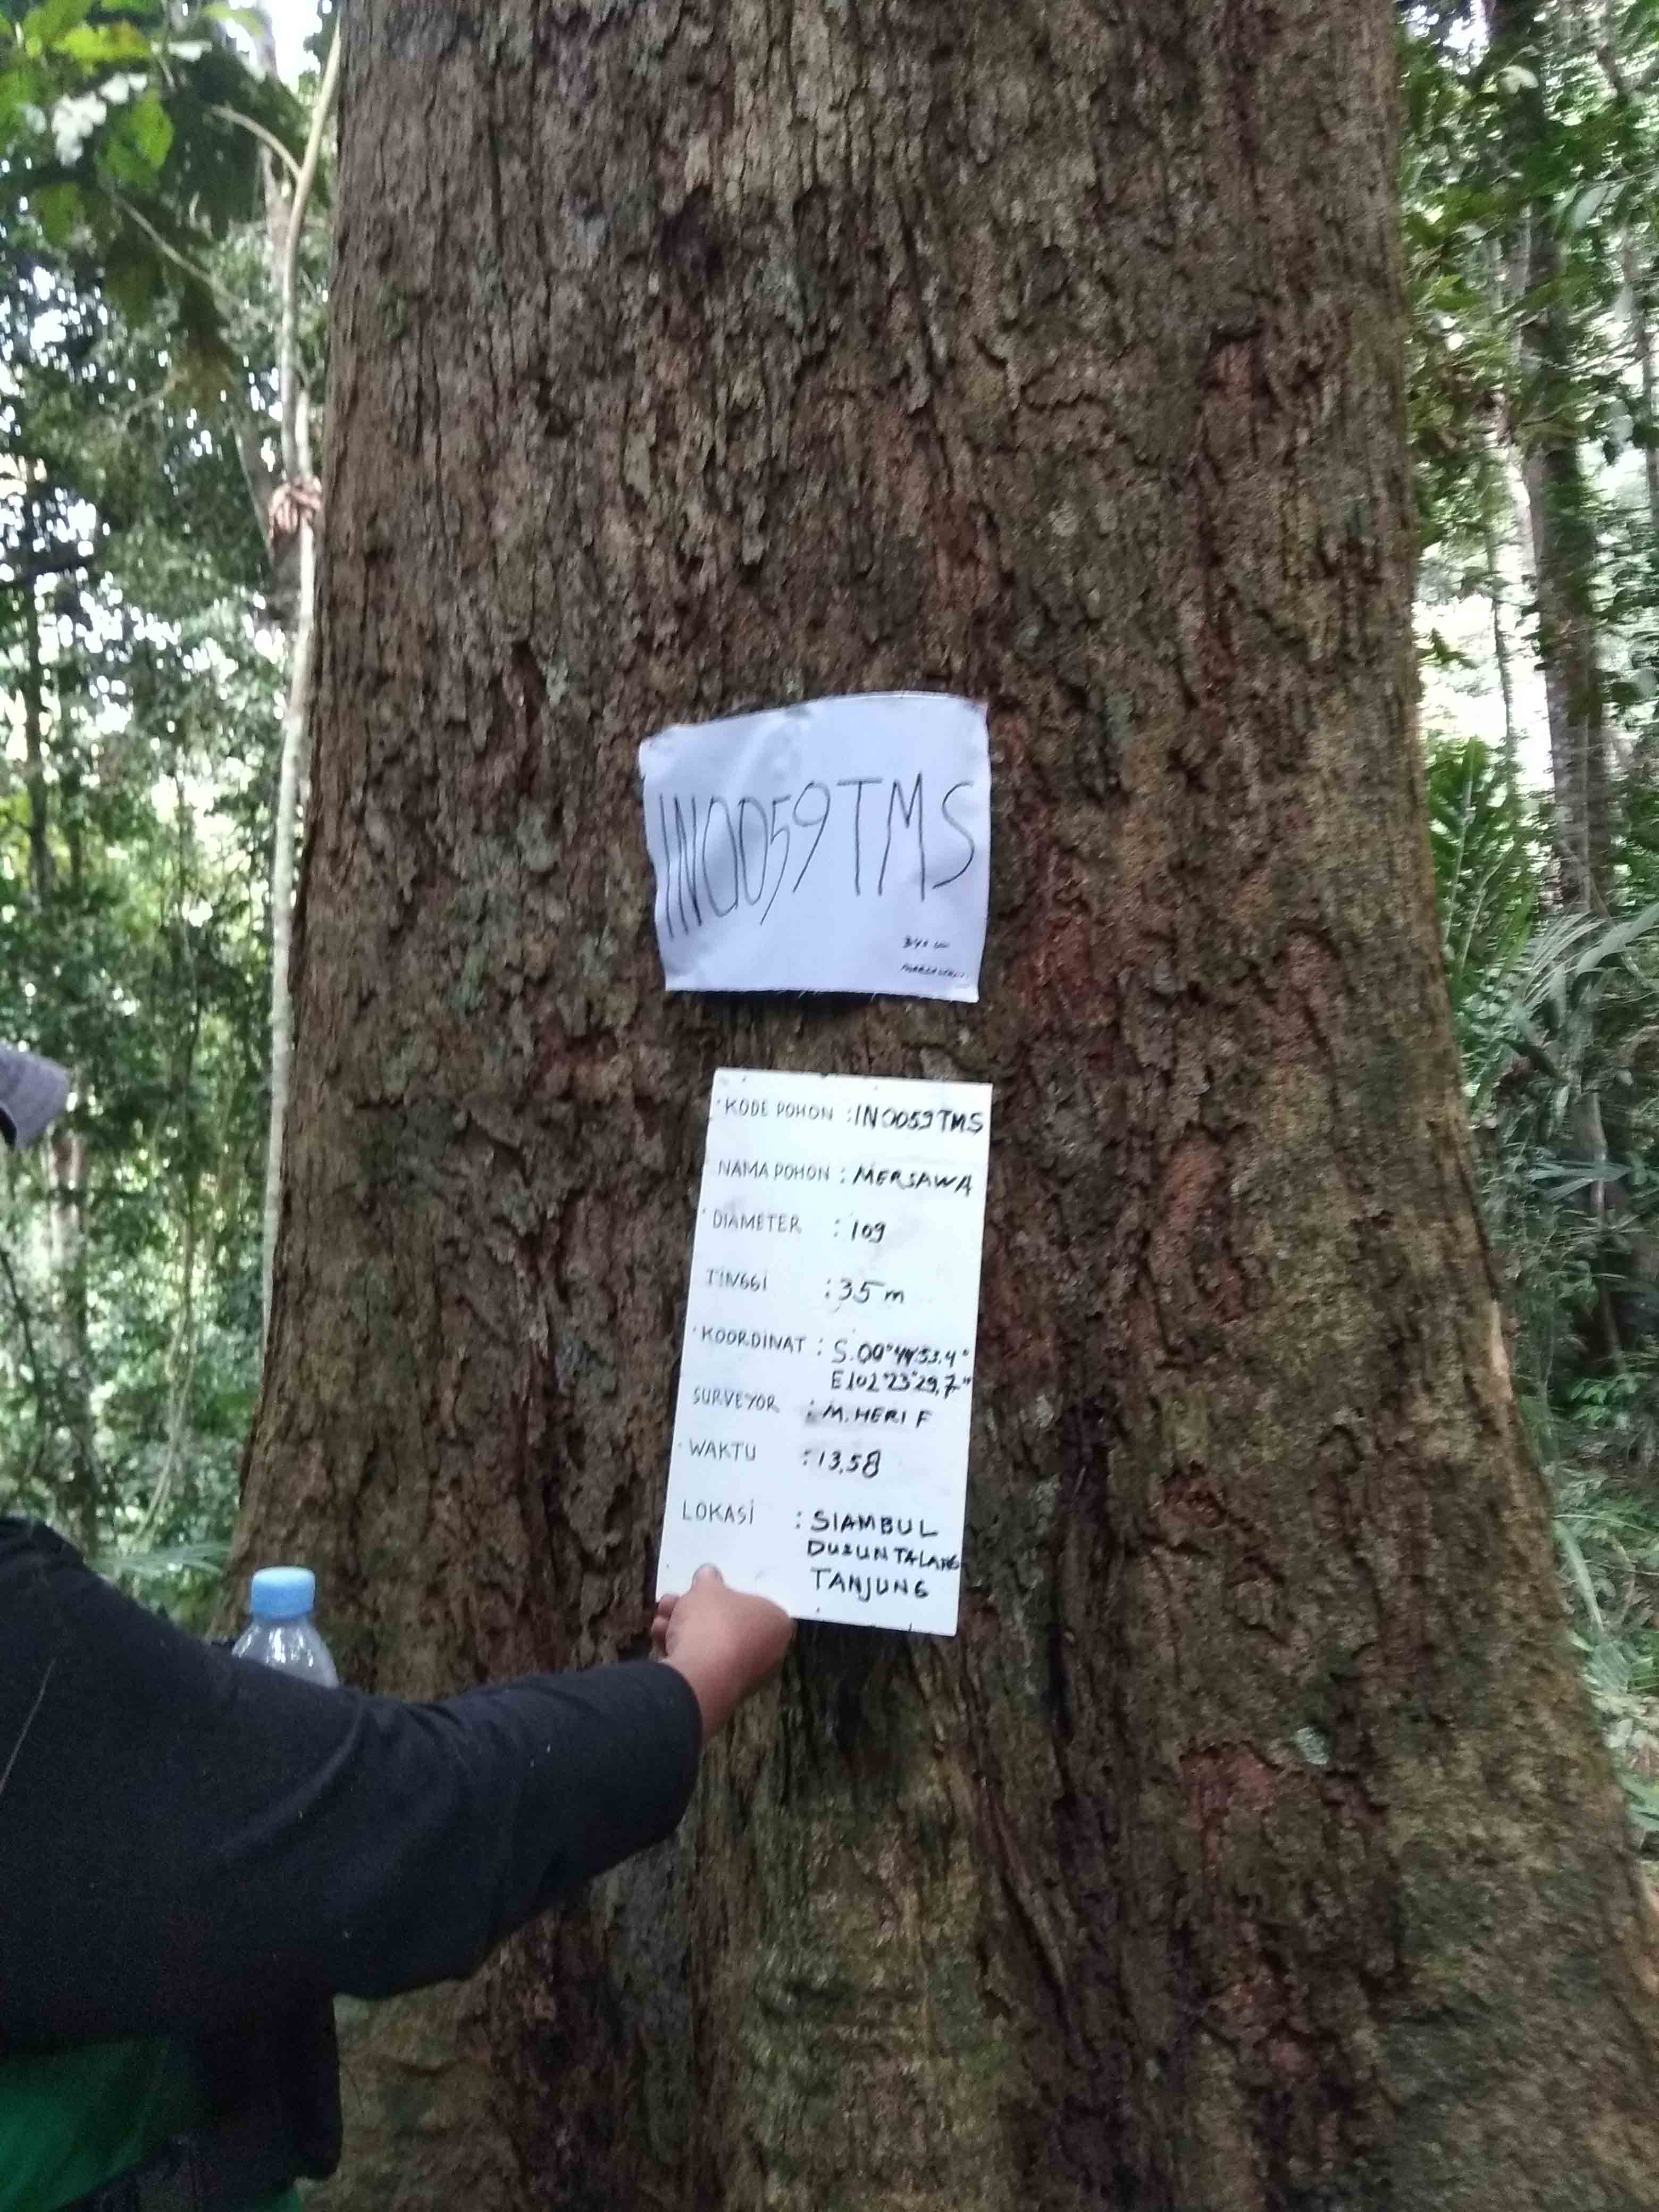 IN0059TMS
KODE POHON : IN0059TMS
NAMA POHON : MERSAWA
DIAMETER : 109
TINGGI : 35 m
KOORDINAT : S.00°44'53.4"
E102°23'29,7"
SURVEYOR : M. HERI F
WAKTU : 13.58
LOKASI : SIAMBUL
DUSUN TALANG
TANJUNG